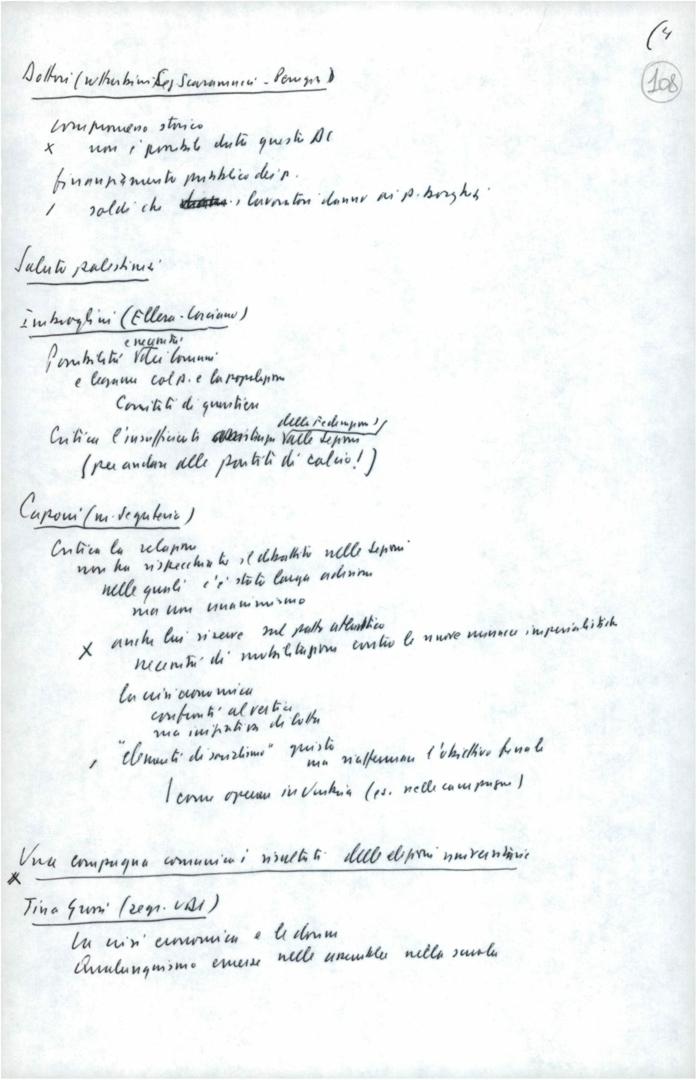 (4
108
Dottori (
Scaramucci - Perugia)
compromesso storico
x non è possibile data questa DC
finanziamento pubblico dei p.
/ soldi che i lavoratori danno ai p. borghesi
Saluto palestinesi
Imbroglini (Ellera - Corciano)
e necessità
Possibilità
e legame col p. e la popolazione
Comitati di quartiere
della Federazione
Critica l'insufficiente nelle sezioni
(per andare alle partite di calcio!)
Caponi (m. segreteria)
Critica la relazione
non ha rispecchiato il dibattito nelle sezioni
nelle quali c'è stata larga adesione
ma non unanimismo
x anche lui riserve sul patto atlantico
necessità di mobilitazione contro le nuove minacce imperialistiche
la crisi economica
confronti al vertice
ma iniziativa di lotta
, "elementi di socialismo" giusto
ma riaffermare l'obiettivo finale
/ come operare in Umbria (es. nelle campagne)
Una compagna comunica i risultati delle elezioni universitarie
x
Tina Grossi (segr. UDI)
La crisi economica e le donne
Qualunquismo emerse nelle assemblee nella scuola